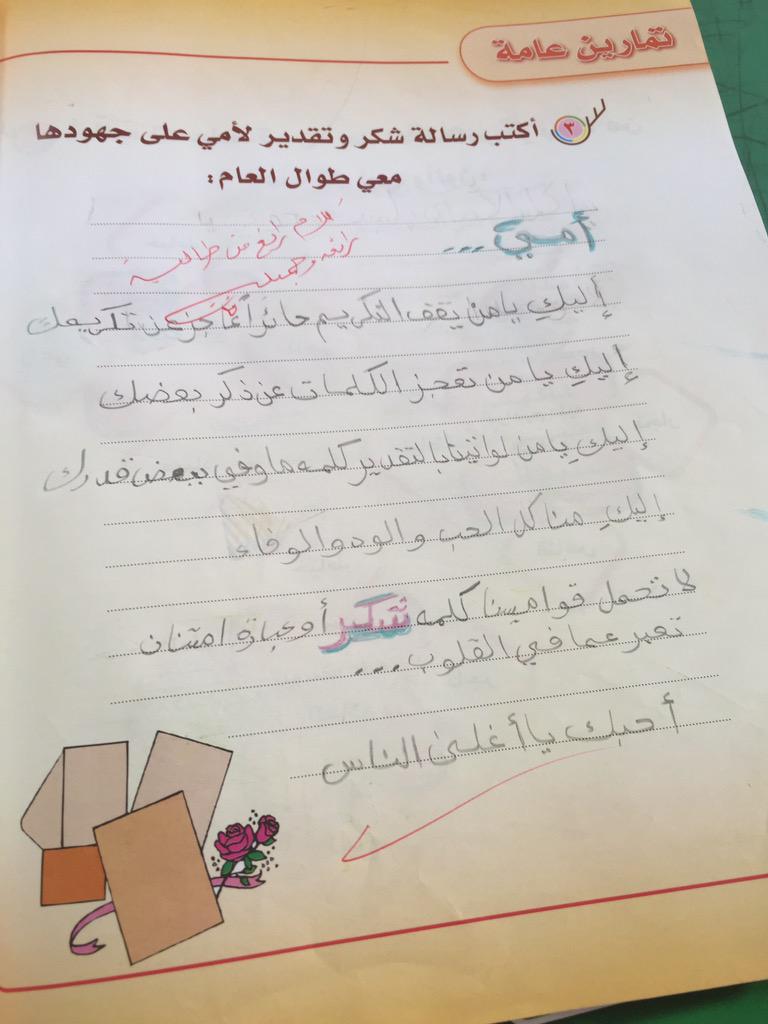 تمارين عامة
٣ أكتب رسالة شكر وتقدير لأمي على جهودها
معي طوال العام:
كلام رائع من طالبة
رائعة وجميلة
أمي ...
إليكِ يا من يقف التكريم حائراً عاجز عن تكريمك
إليكِ يا من تعجز الكلمات عن ذكر بعضك
إليكِ يا من لو اتينا بالتقدير كلمه ما وفي ببعض قدرك
إليكِ منا كل الحب والود والوفاء
لا تحمل قواميسنا كلمه شكر أو عبارة امتنان
تعبر عما في القلوب ...
أحبك يا أغلى الناس